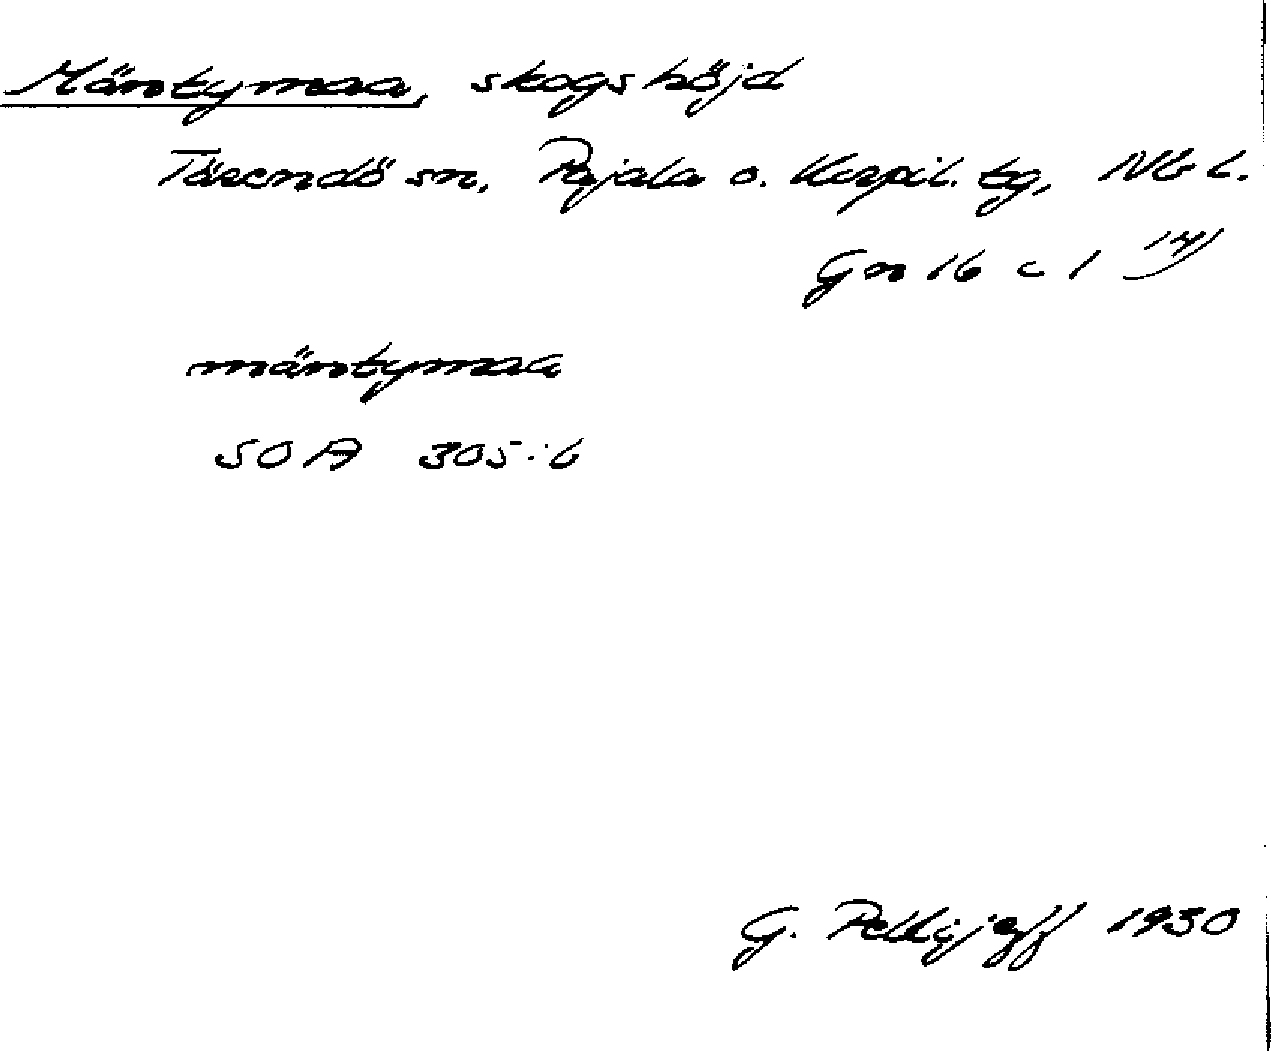 Mäntymaa, skogshöjd
Tärendö sn, Pajala o. Korpil. tg, Nb l.
Gn 16 c 1 141)
mäntymaa
SOA 305:6
G. Pellijeff 1930